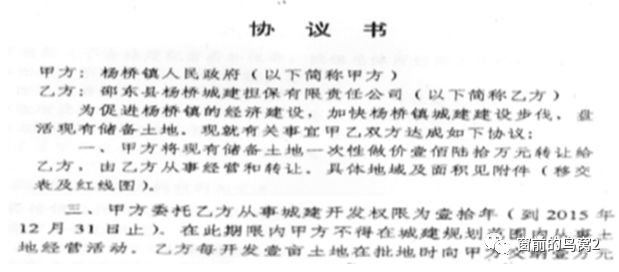 协议书
甲方：杨桥镇人民政府（以下简称甲方）
乙方：邵东县杨桥城建担保有限责任公司（以下简称乙方）
为促进杨桥镇的经济建设，加快杨桥镇城建建设步伐，盘
活现有储备土地，现就有关事宜甲乙双方达成如下协议：
一、甲方将现有储备土地一次性做价壹佰陆拾万元转让给
乙方，由乙方从事经营和转让。具体地域及面积见附件（移交
表及红线图）。
三、甲方委托乙方从事城建开发权限为壹拾年（到2015年
12月31日止）。在此期限内甲方不得在城建规划范围内从事土
地经营活动。乙方每开发壹亩土地在批地时向甲方交纳壹万元
窗前的鸟窝2